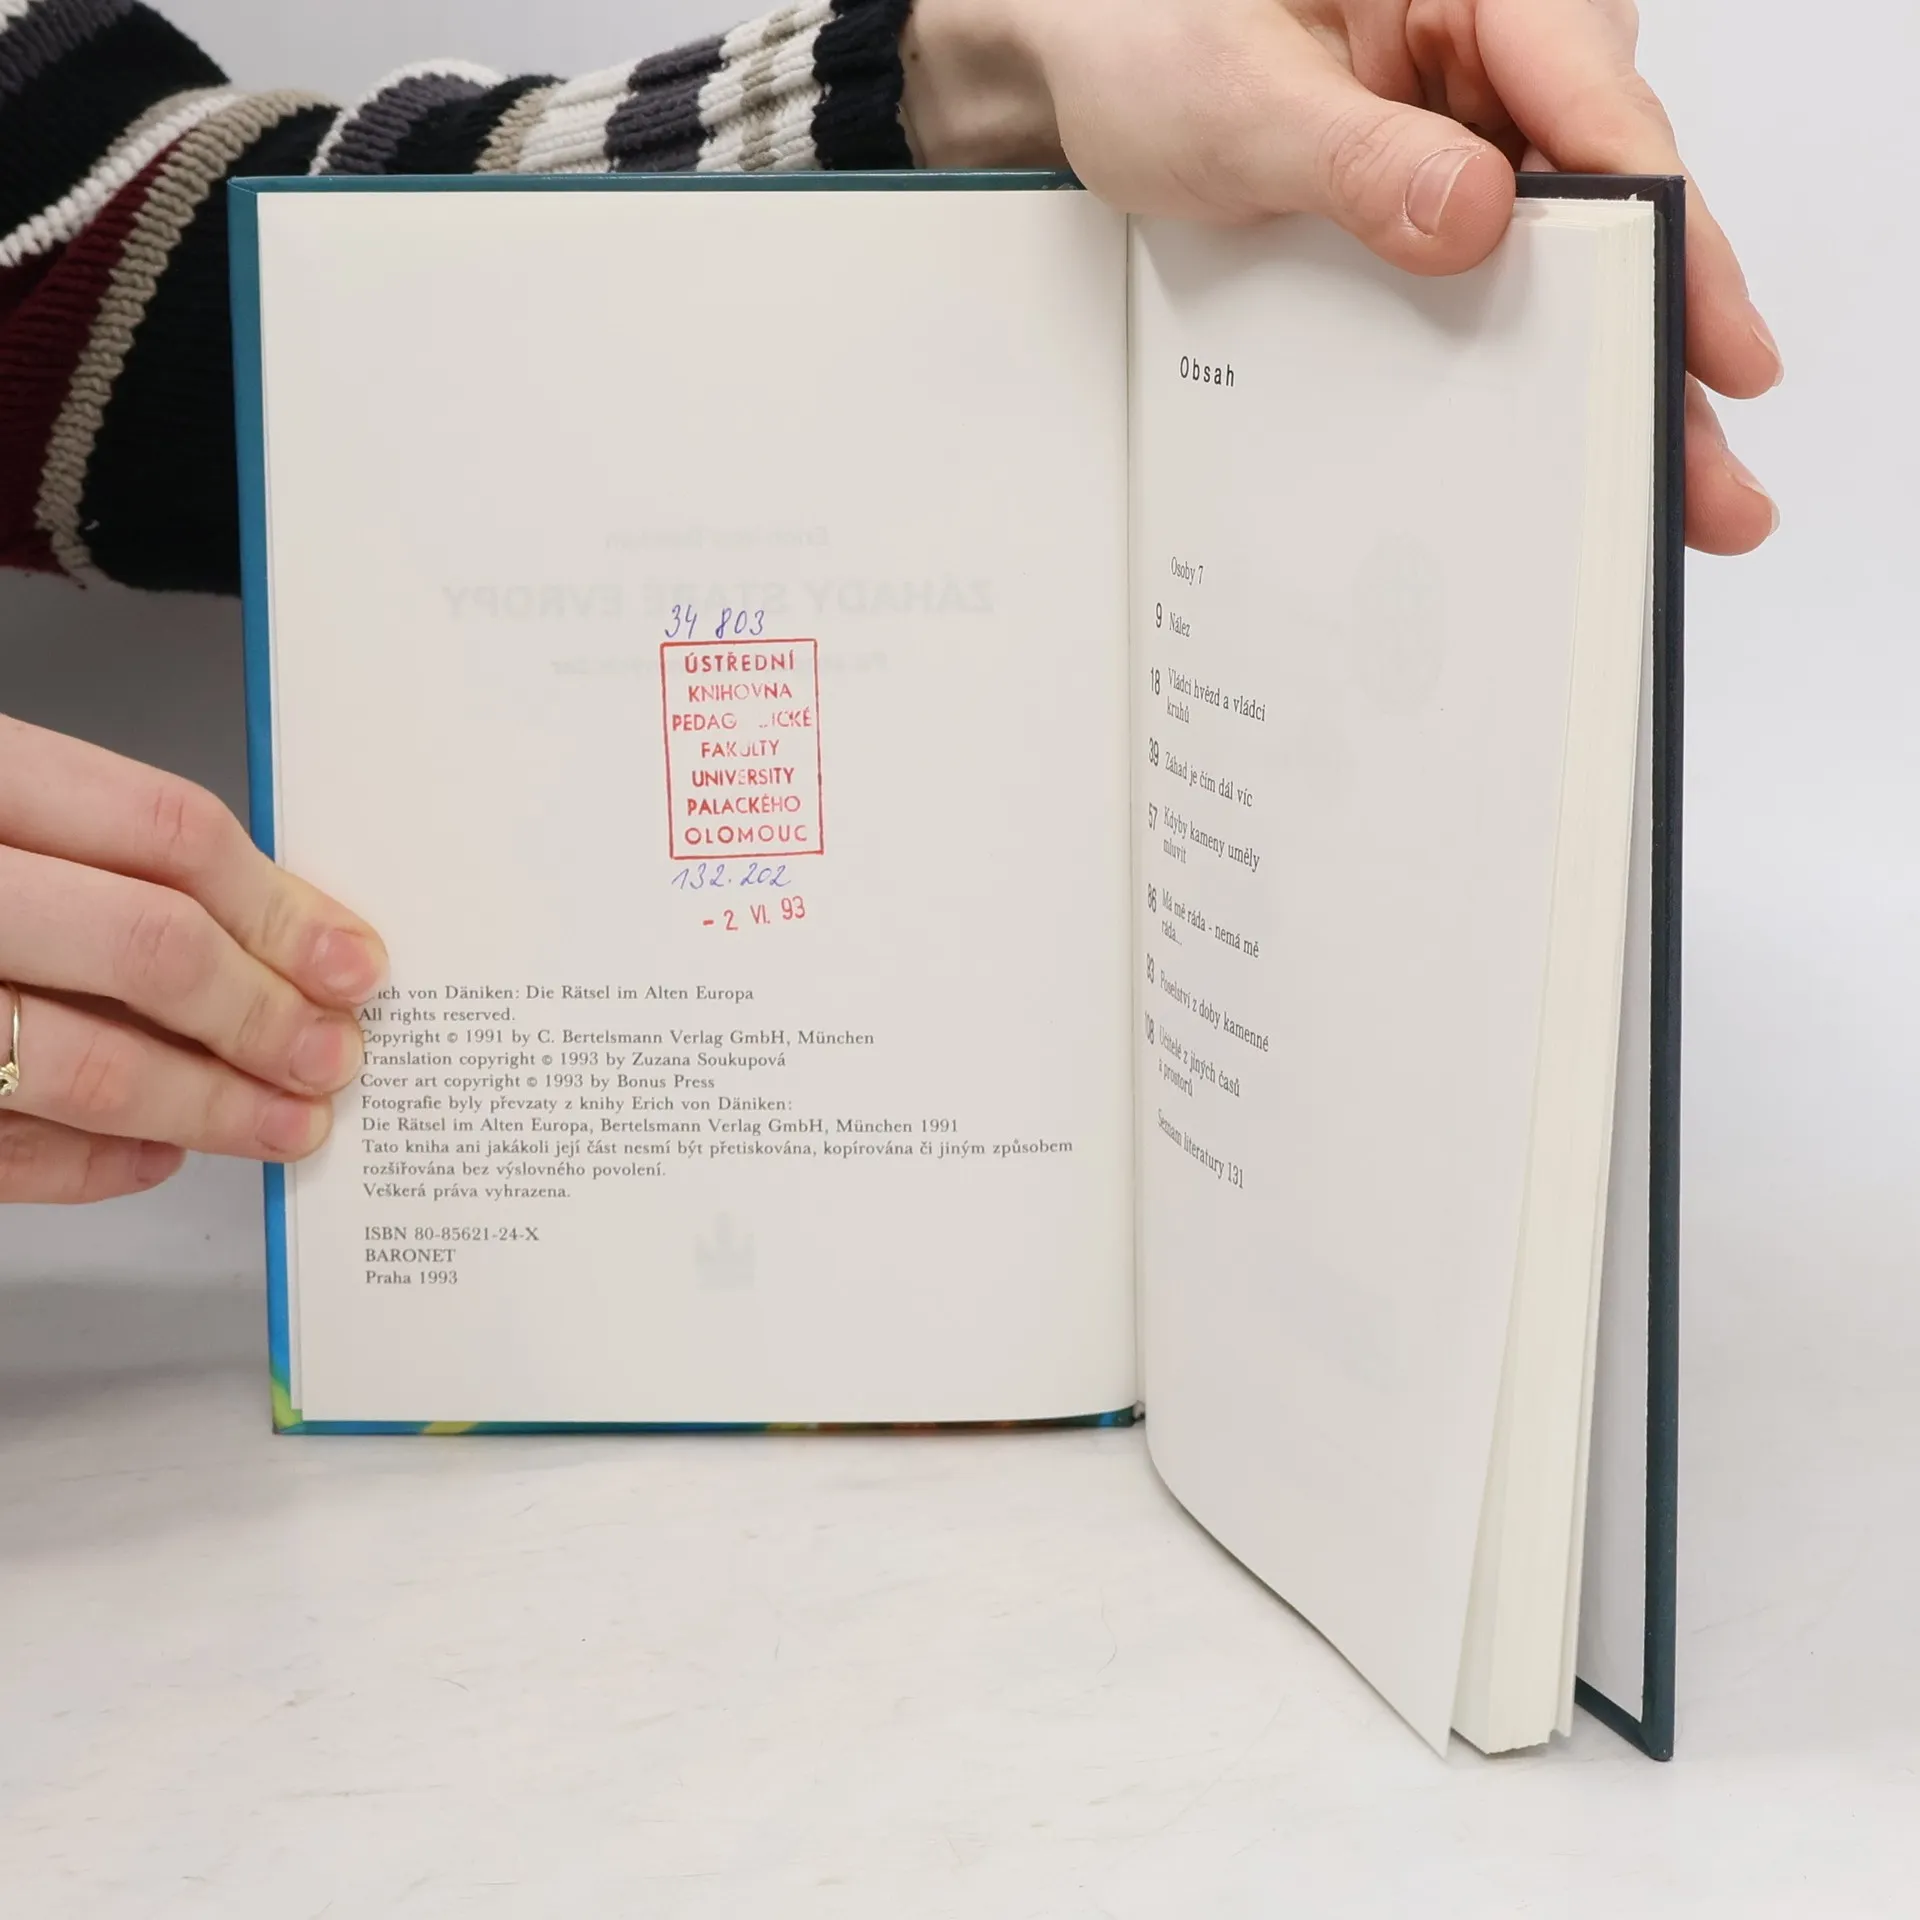 34 803
ÚSTŘEDNÍ
KNIHOVNA
FAKULTY
UNIVERSITY
PALACKÉHO
OLOMOUC
132.202
- 2 VI. 93
von Däniken: Die Rätsel im Alten Europa
All rights reserved.
Copyright © 1991 by C. Bertelsmann Verlag GmbH, München
Translation copyright © 1993 by Zuzana Soukupová
Cover art copyright © 1993 by Bonus Press
Fotografie byly převzaty z knihy Erich von Däniken:
Die Rätsel im Alten Europa, Bertelsmann Verlag GmbH, München 1991
Tato kniha ani jakákoli její část nesmí být přetiskována, kopírována či jiným způsobem
rozšiřována bez výslovného povolení.
Veškerá práva vyhrazena.
ISBN 80-85621-24-X
BARONET
Praha 1993
Obsah
Osoby 7
9 Nález
18 Vládci hvězd a vládci
kruhů
39 Záhad je čím dál víc
57 Kdyby kameny uměly
mluvit
86 Má mě ráda - nemá mě
ráda...
93 Poselství z doby kamenné
108 Učitelé z jiných časů
a prostorů
Seznam literatury 131